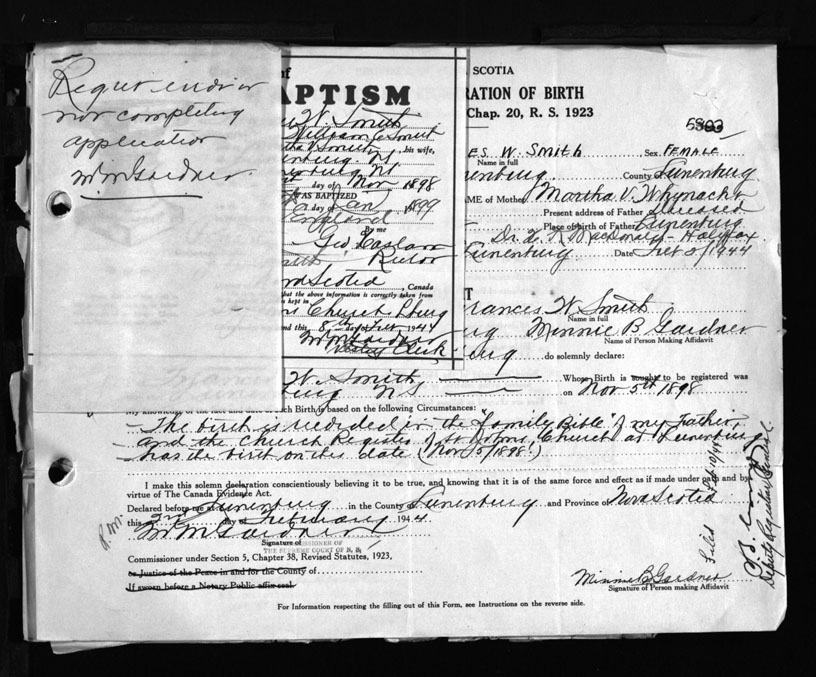 Request endor
not completing
application
W M Gardner
of
APTISM
W. Smith
William Smith
V Smith, his wife,
enburg, NS
day of Nov 1898
AS BAPTIZED
day of Jan 1899
England
By me
Geo Haslam
Rector
Scotia, Canada
that the above information is correctly taken from
kept in
Church L'burg
and this 8th day of Feb 1944
W M Gardner
Clerk
SCOTIA
RATION OF BIRTH
Chap. 20, R. S. 1923
5803
ES W. Smith, Sex FEMALE
Name in full
enburg County Lunenburg
AME of Mother Martha V. Whynacht
Present address of Father Deceased
Place of birth of Father Lunenburg
Dr. MacDonald - Halifax
Lunenburg Date Feb 5/1944
T
rances W. Smith
Name in full
Minnie B Gardner
Name of Person Making Affidavit
urg do solemnly declare:
W. Smith Whose Birth is sought to be registered was
burg NS on Nov 5th 1898
My knowledge of the fact and date of such Birth is based on the following Circumstances:
- The birth is recorded in the "family Bible" of my Father,
- and the Church Register of St Johns Church at Lunenburg
- has the birth on this date (Nov 5/1898.)
I make this solemn declaration conscientiously believing it to be true, and knowing that it is of the same force and effect as if made under oath and by
virtue of The Canada Evidence Act.
Declared before me at Lunenburg in the County Lunenburg and Province of Nova Scotia
this 2nd day of February 1944
W M Gardner
Signature of
COMMISSIONER OF
THE SUPREME COURT OF N. S.
Commissioner under Section 5, Chapter 38, Revised Statutes, 1923,
or Justice of the Peace in and for the County of
If sworn before a Notary Public affix seal.
Minnie B Gardner
Signature of Person making Affidavit
For Information respecting the filling out of this Form, see Instructions on the reverse side.
Filed Feb 10/44
Deputy Registrar General